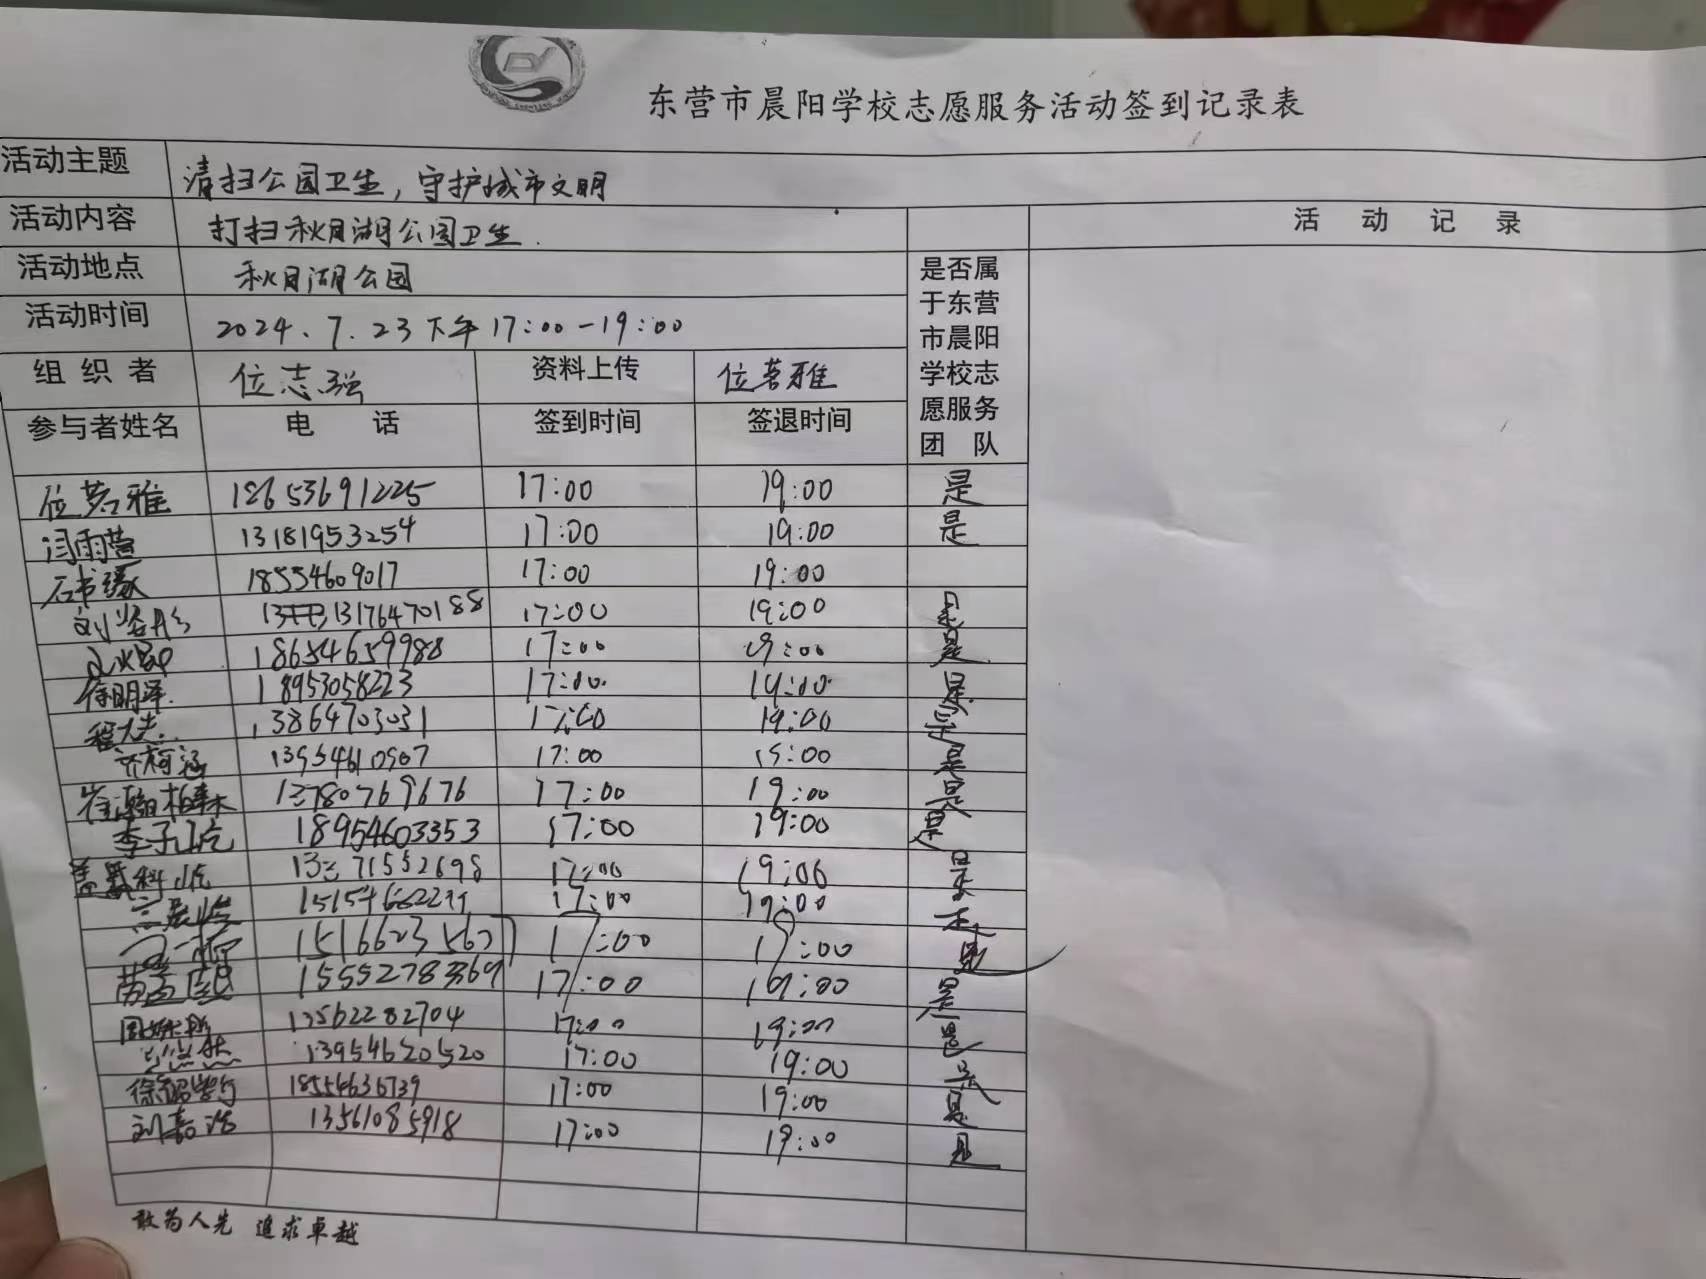 东营市晨阳学校志愿服务活动签到记录表
活动主题 清扫公园卫生,守护城市文明
活动内容 打扫秋月湖公园卫生. 活动记录
活动地点 秋月湖公园
活动时间 2024.7.23下午17:00-19:00
组织者 位志强 资料上传 位茗雅
参与者姓名 电话 签到时间 签退时间 是否属于东营市晨阳学校志愿服务团队
位茗雅 18653691225 17:00 19:00 是
闫雨萱 13181953254 17:00 19:00 是
石书缘 18554609017 17:00 19:00
13176470188 17:00 19:00 是
18654659988 17:00 19:00 是
徐明泽 18953058223 17:00 19:00 是
13864703031 17:00 19:00 是
齐柯涵 13954610907 17:00 19:00 是
13780769676 17:00 19:00 是
李子 18954603353 17:00 19:00 是
盖 17:00 19:00 是
17:00 19:00
17:00 19:00 是
苗孟 15552783369 17:00 19:00 是
周 13562282704 17:00 19:00 是
13954620520 17:00 19:00 是
徐 18554636739 17:00 19:00 是
刘嘉浩 13561085918 17:00 19:00 是
敢为人先 追求卓越